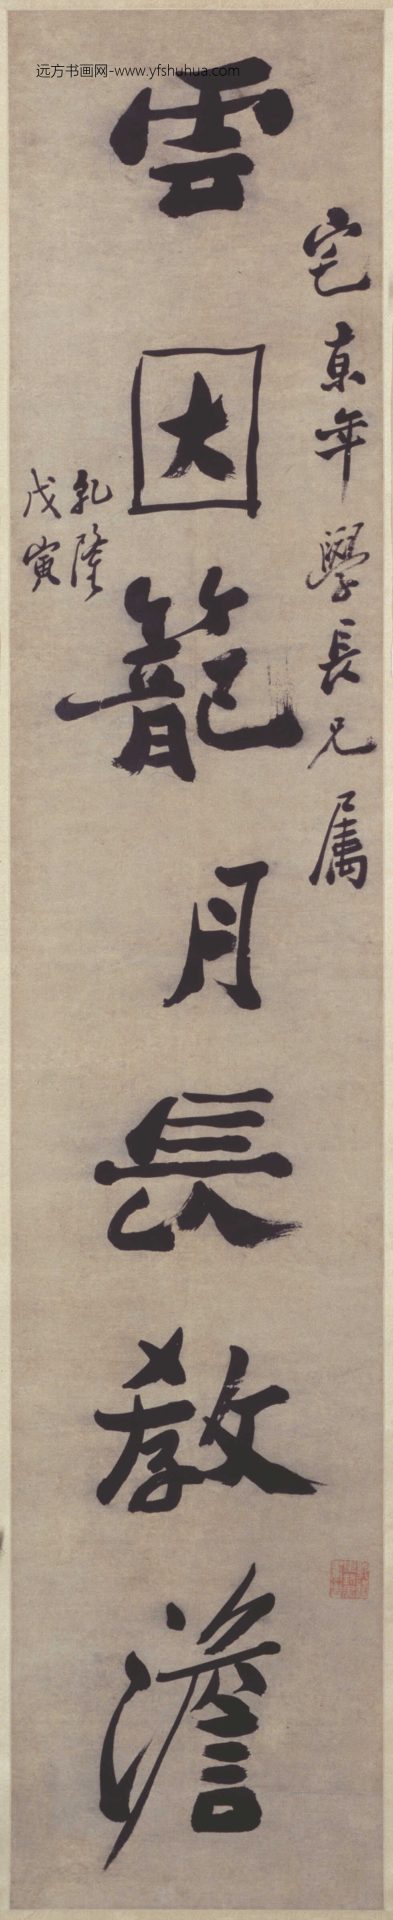 远方书画网-www.yfshuhua.com
宅京年學長兄属
雲因籠月長教澹
乾隆
戊寅